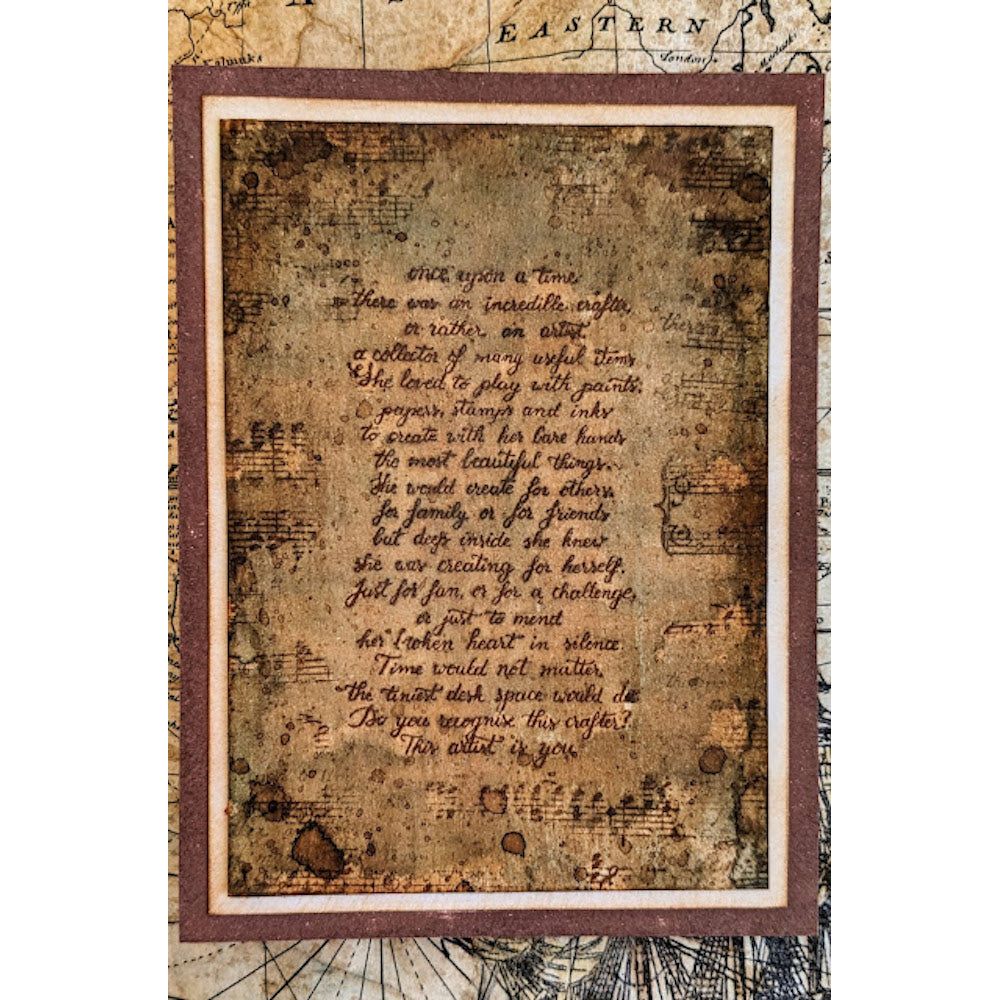 EASTERN
London
Kalmuks
once upon a time
there was an incredible crafter,
or rather an artist
a collector of many useful items
She loved to play with paints,
papers, stamps and inks
to create with her bare hands
the most beautiful things.
She would create for others,
for family or for friends
but deep inside she knew
she was creating for herself.
Just for fun, or for a challenge,
or just to mend
her broken heart in silence.
Time would not matter,
the tiniest desk space would do
Do you recognise this crafter?
This artist is you